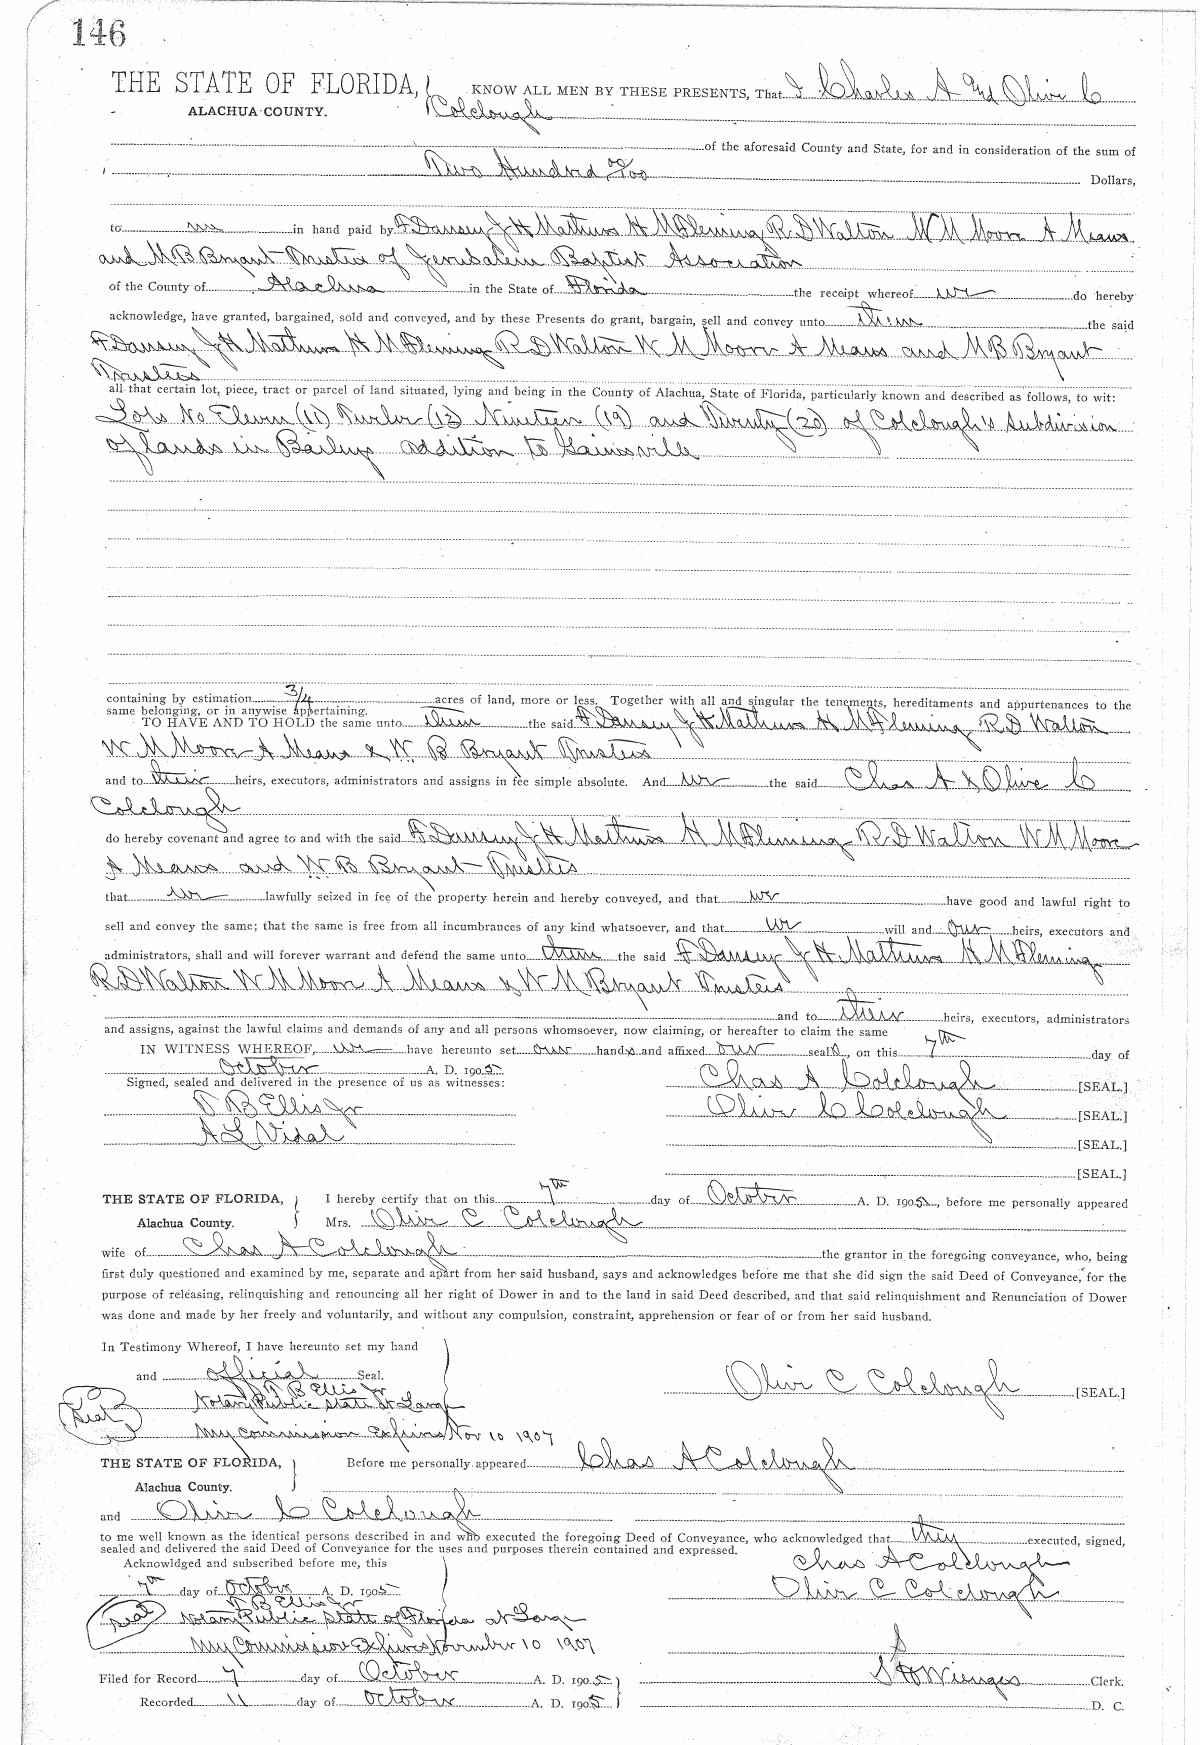 146
THE STATE OF FLORIDA, KNOW ALL MEN BY THESE PRESENTS, That I Charles A and Olive C
ALACHUA COUNTY. Colclough
of the aforesaid County and State, for and in consideration of the sum of
Two Hundred 00/100 Dollars,
to me in hand paid by F Dansey J H Mathews H M Fleming R D Walton W M Moore A Means
and M B Bryant Trustees of Jerusalem Baptist Association
of the County of Alachua in the State of Florida the receipt whereof we do hereby
acknowledge, have granted, bargained, sold and conveyed, and by these Presents do grant, bargain, sell and convey unto them the said
F Dansey J H Mathews H M Fleming R D Walton W M Moore A Means and M B Bryant
Trustees
all that certain lot, piece, tract or parcel of land situated, lying and being in the County of Alachua, State of Florida, particularly known and described as follows, to wit:
Lots No Eleven (11) Twelve (12) Nineteen (19) and Twenty (20) of Colclough's Subdivision
of lands in Baileys addition to Gainsville
containing by estimation 3/4 acres of land, more or less. Together with all and singular the tenements, hereditaments and appurtenances to the
same belonging, or in anywise appertaining.
TO HAVE AND TO HOLD the same unto them the said F Dansey J H Mathews H M Fleming R D Walton
W M Moore A Means & W B Bryant Trustees
and to their heirs, executors, administrators and assigns in fee simple absolute. And we the said Chas A & Olive C
Colclough
do hereby covenant and agree to and with the said F Dansey J H Mathews H M Fleming R D Walton W M Moore
A Means and W B Bryant Trustees
that we lawfully seized in fee of the property herein and hereby conveyed, and that we have good and lawful right to
sell and convey the same; that the same is free from all incumbrances of any kind whatsoever, and that we will and our heirs, executors and
administrators, shall and will forever warrant and defend the same unto them the said F Dansey J H Mathews H M Fleming
R D Walton W M Moore A Means & W M Bryant Trustees
and to their heirs, executors, administrators
and assigns, against the lawful claims and demands of any and all persons whomsoever, now claiming, or hereafter to claim the same
IN WITNESS WHEREOF, we have hereunto set our hands and affixed our seals, on this 7th day of
October A. D. 1905
Signed, sealed and delivered in the presence of us as witnesses: Chas A Colclough [SEAL.]
T B Ellis Jr Olive C Colclough [SEAL.]
A L Vidal [SEAL.]
[SEAL.]
THE STATE OF FLORIDA, I hereby certify that on this 7th day of October A. D. 1905, before me personally appeared
Alachua County. Mrs. Olive C Colclough
wife of Chas A Colclough the grantor in the foregoing conveyance, who, being
first duly questioned and examined by me, separate and apart from her said husband, says and acknowledges before me that she did sign the said Deed of Conveyance, for the
purpose of releasing, relinquishing and renouncing all her right of Dower in and to the land in said Deed described, and that said relinquishment and Renunciation of Dower
was done and made by her freely and voluntarily, and without any compulsion, constraint, apprehension or fear of or from her said husband.
In Testimony Whereof, I have hereunto set my hand
and official Seal. Olive C Colclough [SEAL.]
T B Ellis Jr
Seal Notary Public State At Large
My commission Expires Nov 10 1907
THE STATE OF FLORIDA, Before me personally appeared Chas A Colclough
Alachua County.
and Olive C Colclough
to me well known as the identical persons described in and who executed the foregoing Deed of Conveyance, who acknowledged that they executed, signed,
sealed and delivered the said Deed of Conveyance for the uses and purposes therein contained and expressed.
Acknowldged and subscribed before me, this Chas A Colclough
7th day of October A. D. 1905 Olive C Colclough
T B Ellis Jr
Seal Notary Public State of Florida at Large
My Commission Expires November 10 1907
Filed for Record 7 day of October A. D. 1905 S H Wienges Clerk.
Recorded 11 day of October A. D. 1905 D. C.